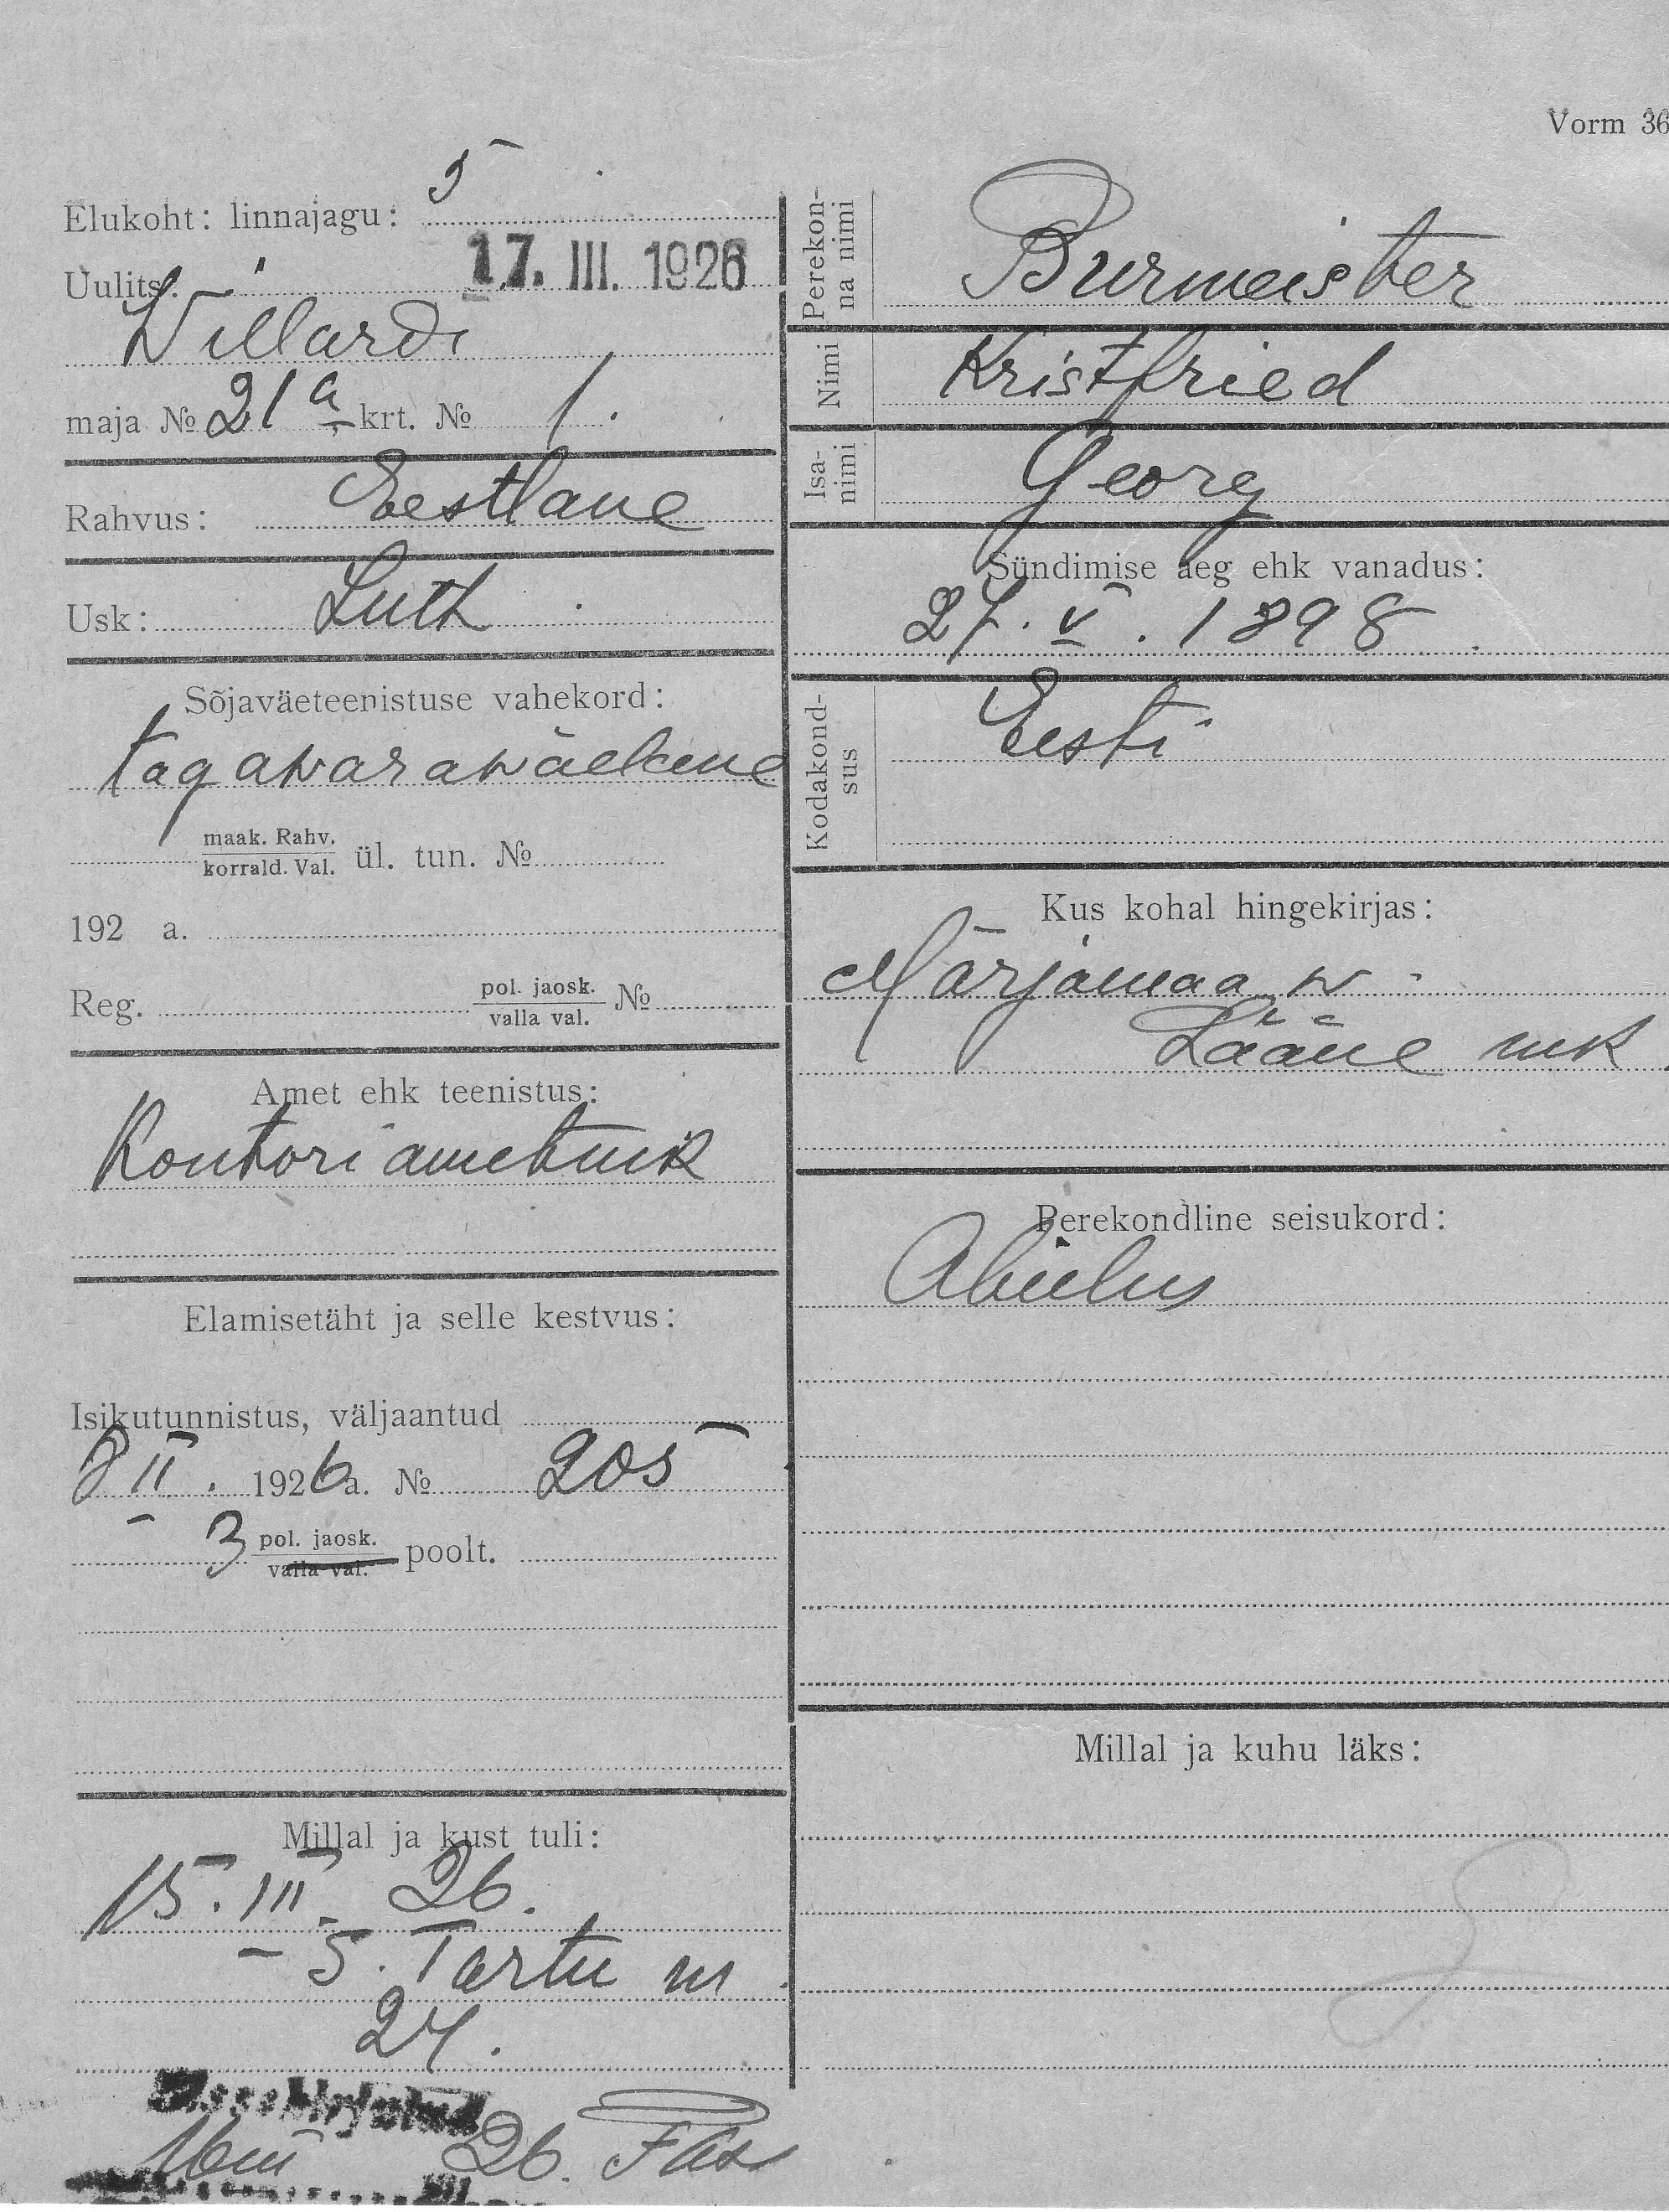 Vorm 36
Elukoht: linnajagu: 5
17. III. 1926
Uulits:
Willardi
maja № 21 a krt. № 1.
Rahvus: Eestlane
Usk: Luth
Sõjaväeteenistuse vahekord:
tagawarawäelane
maak. Rahv.
korrald. Val. ül. tun. №
192 a.
Reg. pol. jaosk. №
valla val.
Amet ehk teenistus:
Kontori ametnik
Elamisetäht ja selle kestvus:
Isikutunnistus, väljaantud
8 II. 1926 a. № 205
3 pol. jaosk. poolt.
valla val.
Millal ja kust tuli:
15. III. 26.
- 5. Tartu m
24.
Sissekirjutud
16 III 26.
Perekon-
na nimi
Burmeister
Nimi
Kristfried
Isa-
nimi
Georg
Sündimise aeg ehk vanadus:
27. V. 1898
Kodakond-
sus
Eesti
Kus kohal hingekirjas:
Märjamaa w.
Lääne mk.
Perekondline seisukord:
Abielus
Millal ja kuhu läks: